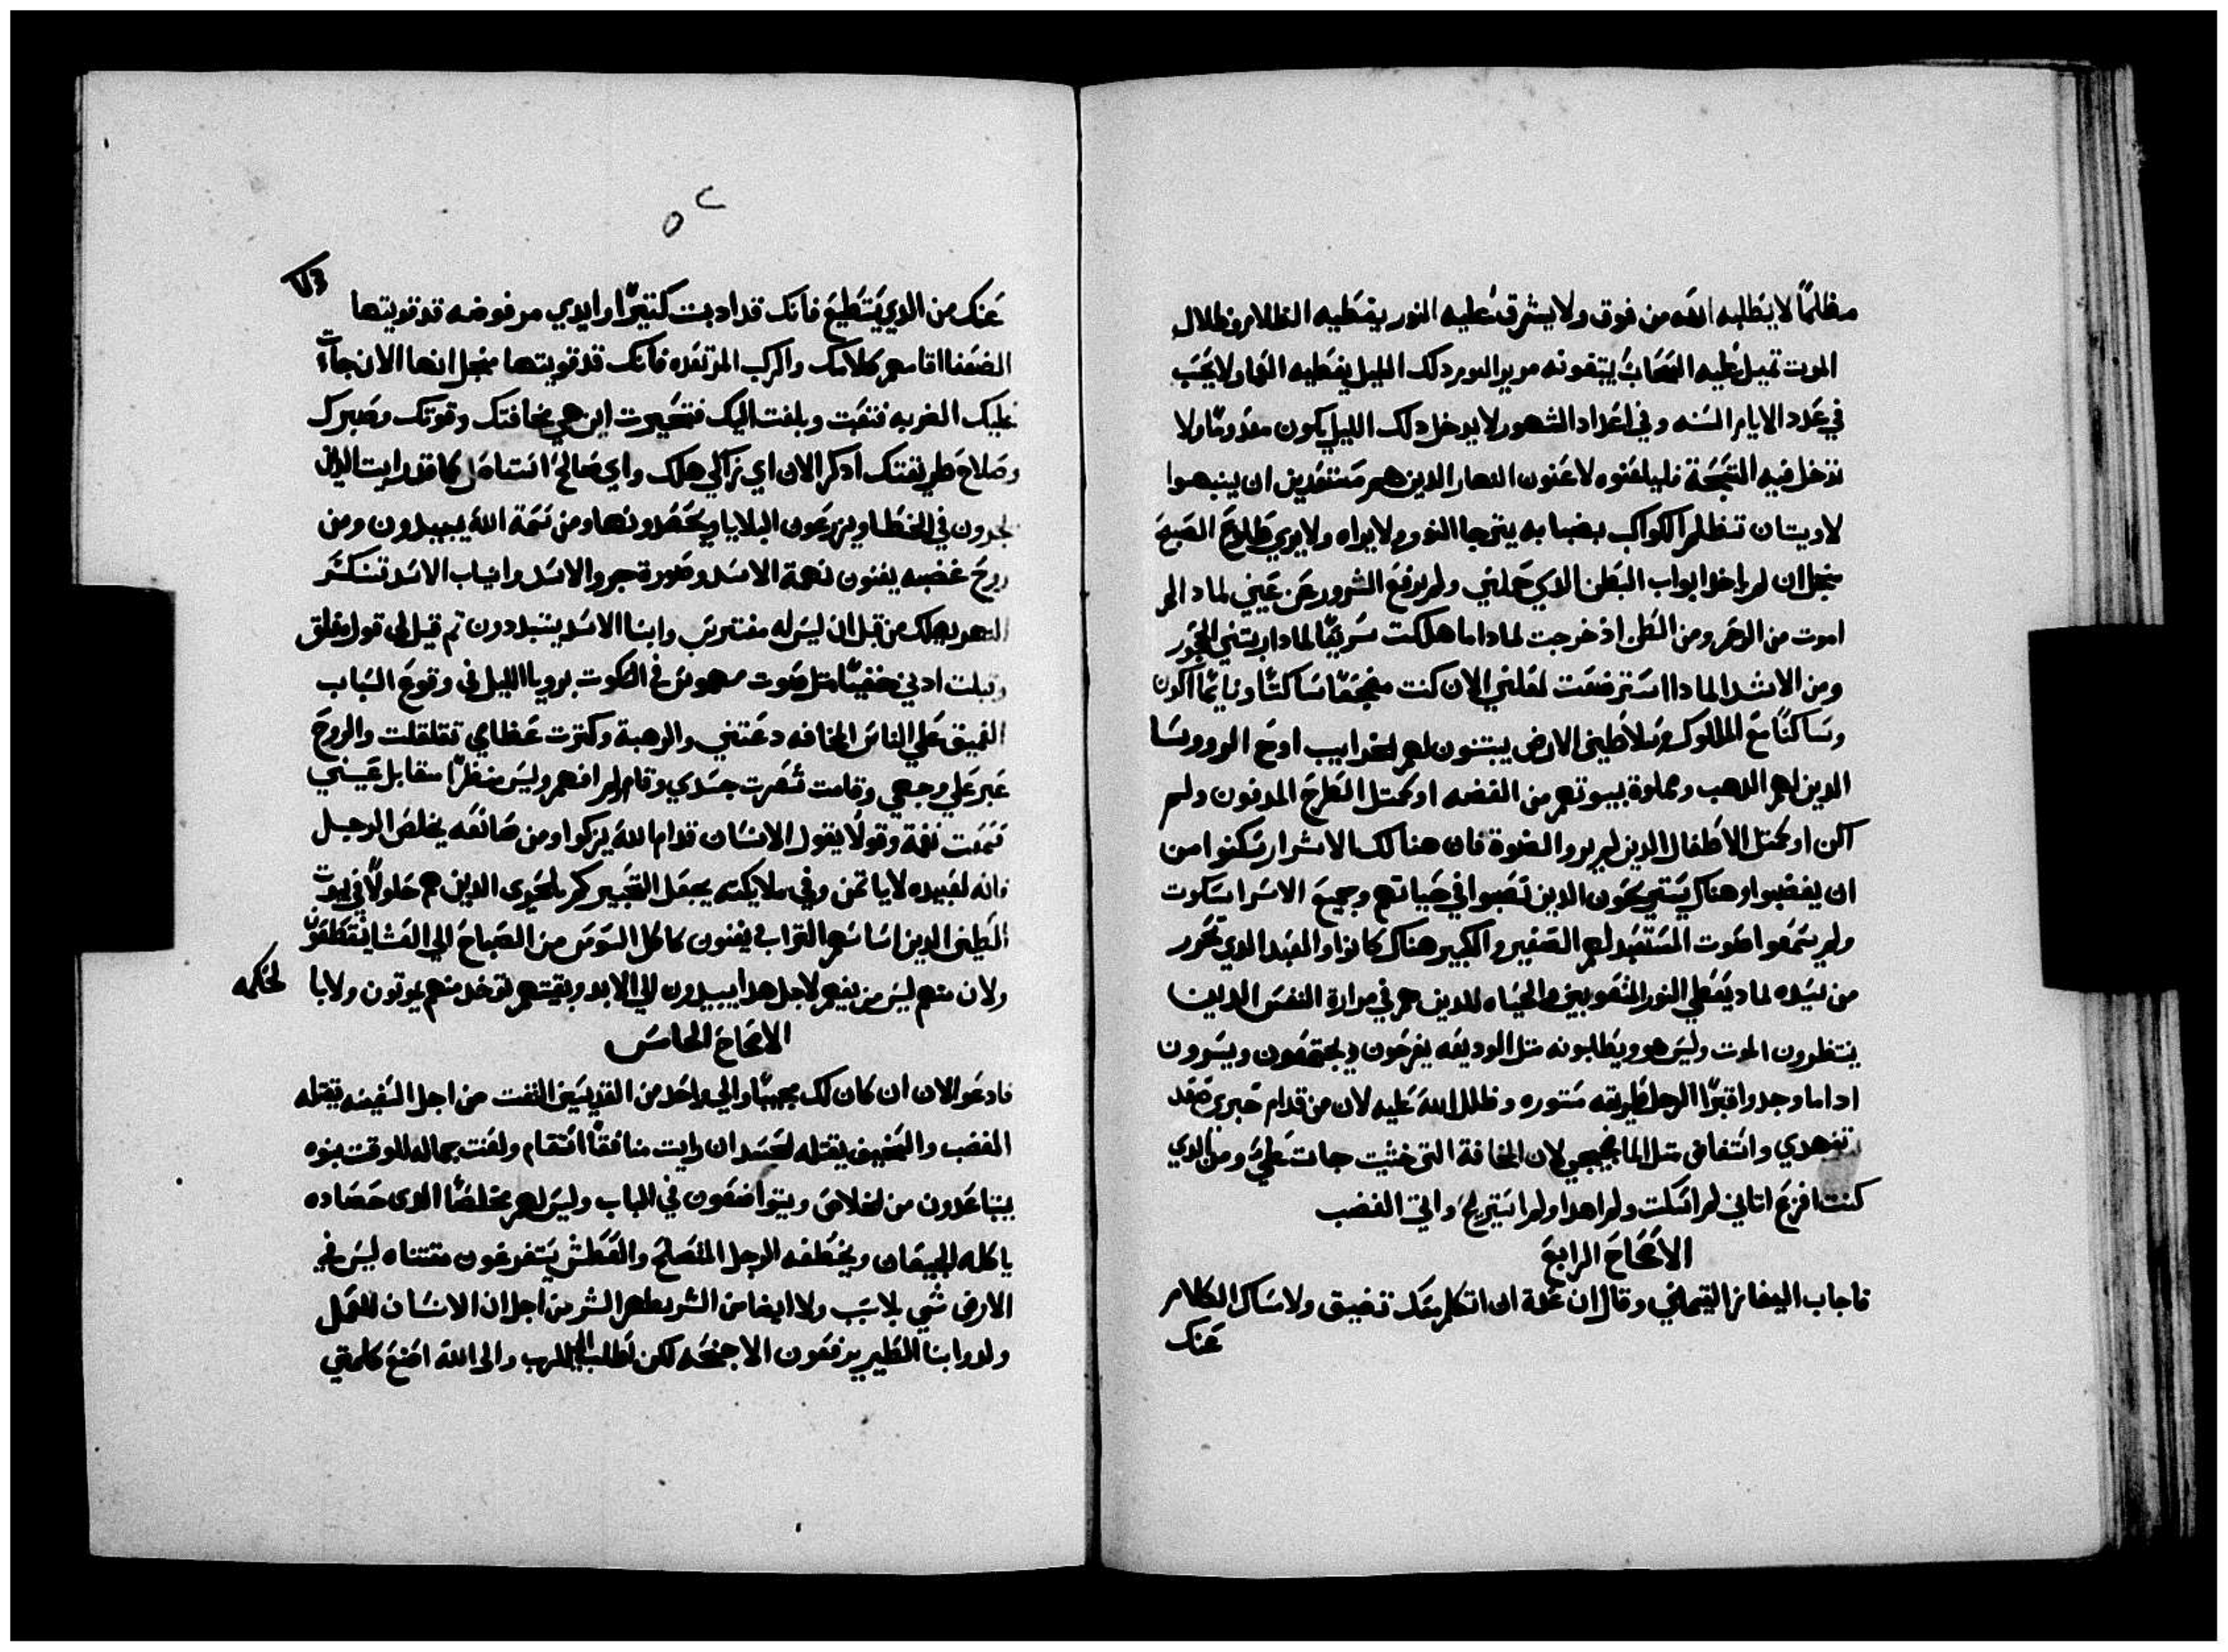 مظلمًا لا يطلبه الله من فوق ولا يشرق عليه النور يغطيه الظلام وظلال
الموت تميل عليه السحاب يبتغونه مرير اليوم دلك الليل يغطيه القها ولا يحسب
في عدد الايام السنه وفي اعداد الشهور لا يدخل دلك الليل يكون معدومًا ولا
تدخل فيه التسبحة فليلعنوه لاعنون النهار الدين هم مستعدين ان ينبهوا
لاويتان تظلم الكواكب بضبابه يترجا النور ولا يراه ولا يري طلوع الصبح
منجل ان لم ياخد ابواب البطن الدي حملني ولم يرفع الشرور عن عيني لماد الم
اموت من الرحم ومن البطن اذ خرجت لمادا ما هلكت سريعًا لمادا ربتني الحجور
ومن الاثد المادا استرضعت لعلني الان كنت منجعًا ساكتًا ونايمًا اكون
وساكنًا مع الملوك وسلاطين الارض يبتنون لهم لخرايب اومع الرووسا
الدين لهم الدهب ومملوة بيوتهم من الفضه او كمتل الطرح المدفون ولم
اكن او كمتل الاطفال الدين لم يروا الضوة فان هنالك الاشرار سكنوا من
ان يغضبوا وهناك يستريحون الدين تعبوا في حياتهم وجميع الاسرا سكوت
ولم يسمعوا صوت المستعبد لهم الصغير والكبير هناك كانوا والعبد الدي تحرر
من سيده لماد يعطي النور للشقوبين والحياه للدين هم في مرارة النفس الدين
ينتظرون الموت وليس هو ويطلبونه متل الوديعه يفرحون ويجتمعون ويسرون
اداما وجدوا قبرًا الرجل طريقه مستوره وظلل الله عليه لان من قدام خبزي صعد
تنهدي وانتفاقي متل الما ضجيجي لان المخافة التي خشيت جات علي ومن الدي
كنت افزع اتاني لم اسكت ولم اهدا ولم استريح واتي الغضب
الاصحاح الرابع
فاجاب اليفاز التيماني وقال ان عدة ان اتكلم معك تضيق ولامساك الكلام
عنك
٥٢
عنك من الدي يستطيع فانك قد ادبت كتيرًا وايدي مرفوضه قد قويتها
الضعفا اقامهم كلامك والركب المرتعده فانك قد قويتها منجل انها الان جات
عليك الضربه فتعبت وبلغت اليك فتحيرت اين هي مخافتك وقوتك وصبرك
وصلاح طريقتك ادكر الان اي زاكي هلك واي صالح استاصل كما قد رايت الدين
يحرون في الخطا ويزرعون البلايا ويحصدونها ومن نسمة الله يبيدون ومن
روح غضبه يفنون نهمة الاسد وصورة جرو الاسد وانياب الاسد تتكسر
النمر يهلك من قبل ان ليس له مفترس وابنا الاسد يتبددون تم قيل لي قول مغلق
وقبلت ادني خفيًا متل صوت مهوس في السكوت برويا الليل في وقوع السباب
العميق علي الناس المخافه دعتني والرهبة وكترت عظامي تقلقلت والروح
عبر علي وجهي وقامت شعرت جسدي وقام لم افهم وليس منظرًا مقابل عيني
فسمعت نغمة وقولًا يقول الانسان قدام الله يزكوا ومن صانعه يخلص الرجل
فانه لعبيده لا ياتمن وفي ملايكته يجعل التعبير كم بالحري الدين هم حلولًا في بيوت
الطين الدين اساسهم التراب يفنون كاكل السوس من الصباح الي العشا ينقطفون
ولان منهم ليس من يفهم لاجل هدا يبيدون الي الابد وبقيتهم توخد منهم يموتون ولا با لحكمه
الاصحاح الخامس
فادعو الان ان كان لك مجيبًا والي واحد من القديسين التفت من اجل السفيه يقتله
الغضب والسخيف يقتله الحسد ان رايت منافقًا استقام ولعنت جماله للوقت بنوه
يتباعدون من الخلاص ويتواضعون في الباب وليس لهم مخلصًا الدى حصاده
ياكله الجيعان ويخطفه الرجل المتسلح والعطش يستفرغون مقتناه ليس في
الارض شي بلا سبب ولا ايضا من الشر يطهر الشر من اجل ان الانسان للعمل
ولد وابنا الطير يرفعون الاجنحه لكن لطلب الي الرب والى الله اصنع كلمتي